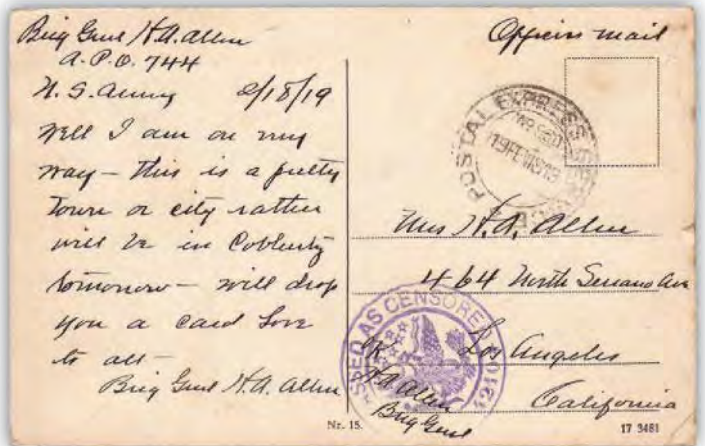 Brig Genl H.A. Allen
A.P.O. 744
U.S. Army 2/18/19
Well I am on my
way — this is a pretty
Town or city rather
will be in Coblentz
tomorrow — will drop
you a card Love
to all —
Brig Genl H.A. Allen
Officers mail
POSTAL EXPRESS SERVICE
Mrs H.A. Allen
464 North Serrano Ave
Los Angeles
California
PASSED AS CENSORED
OK
H.A. Allen
Brig Genl
Nr. 15.
17 3481